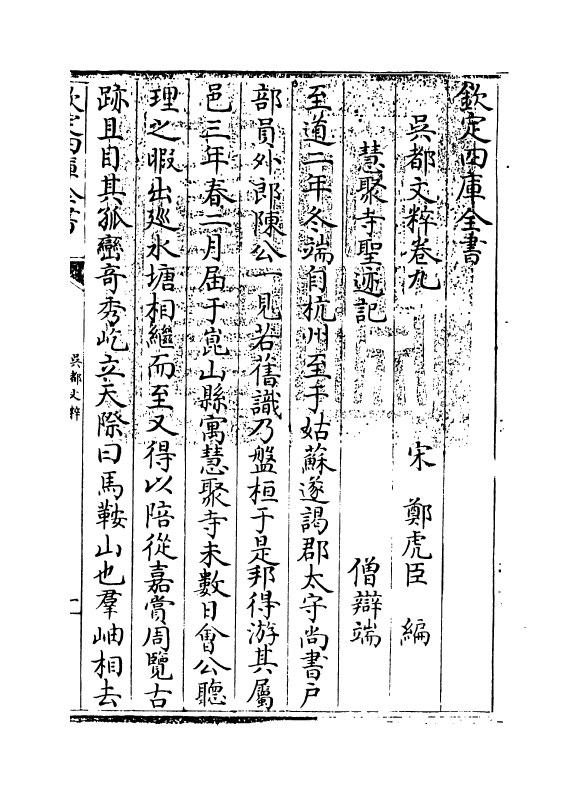 欽定四庫全書
吳都文粹卷九 宋 鄭虎臣 編
慧聚寺聖迹記 僧辯端
至道二年冬端自杭州至于姑蘇遂謁郡太守尚書戶
部員外郎陳公一見若舊識乃盤桓于是邦得游其屬
邑三年春二月届于崑山縣寓慧聚寺未數日會公聽
理之暇出廵水塘相繼而至又得以陪從嘉賞周覽古
跡且目其孤巒奇秀屹立天際曰馬鞍山也羣岫相去
欽定四庫全書
吳都文粹
一